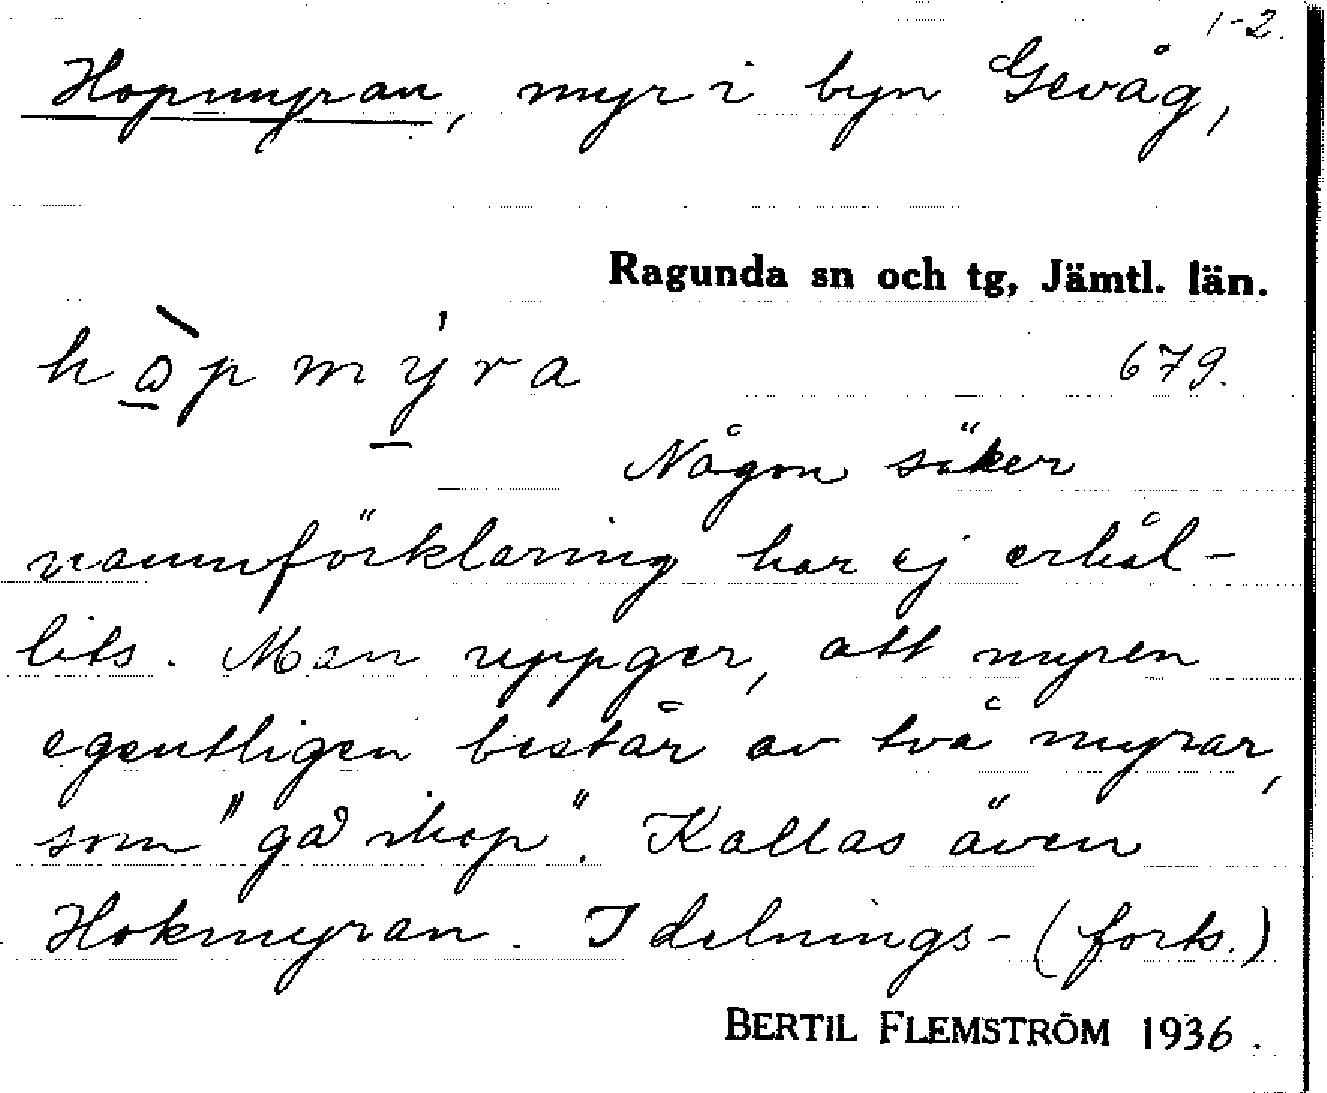 1-2.
Hopmyran, myr i byn Gevåg,
Ragunda sn och tg, Jämtl. län.
hò̱pmý̱ra
679.
Någon säker
namnförklaring har ej erhål-
lits. Man uppger, att myren
egentligen består av två myrar,
som "gå ihop". Kallas även
Hokmyran. I delnings- (forts.)
BERTIL FLEMSTRÖM 1936.